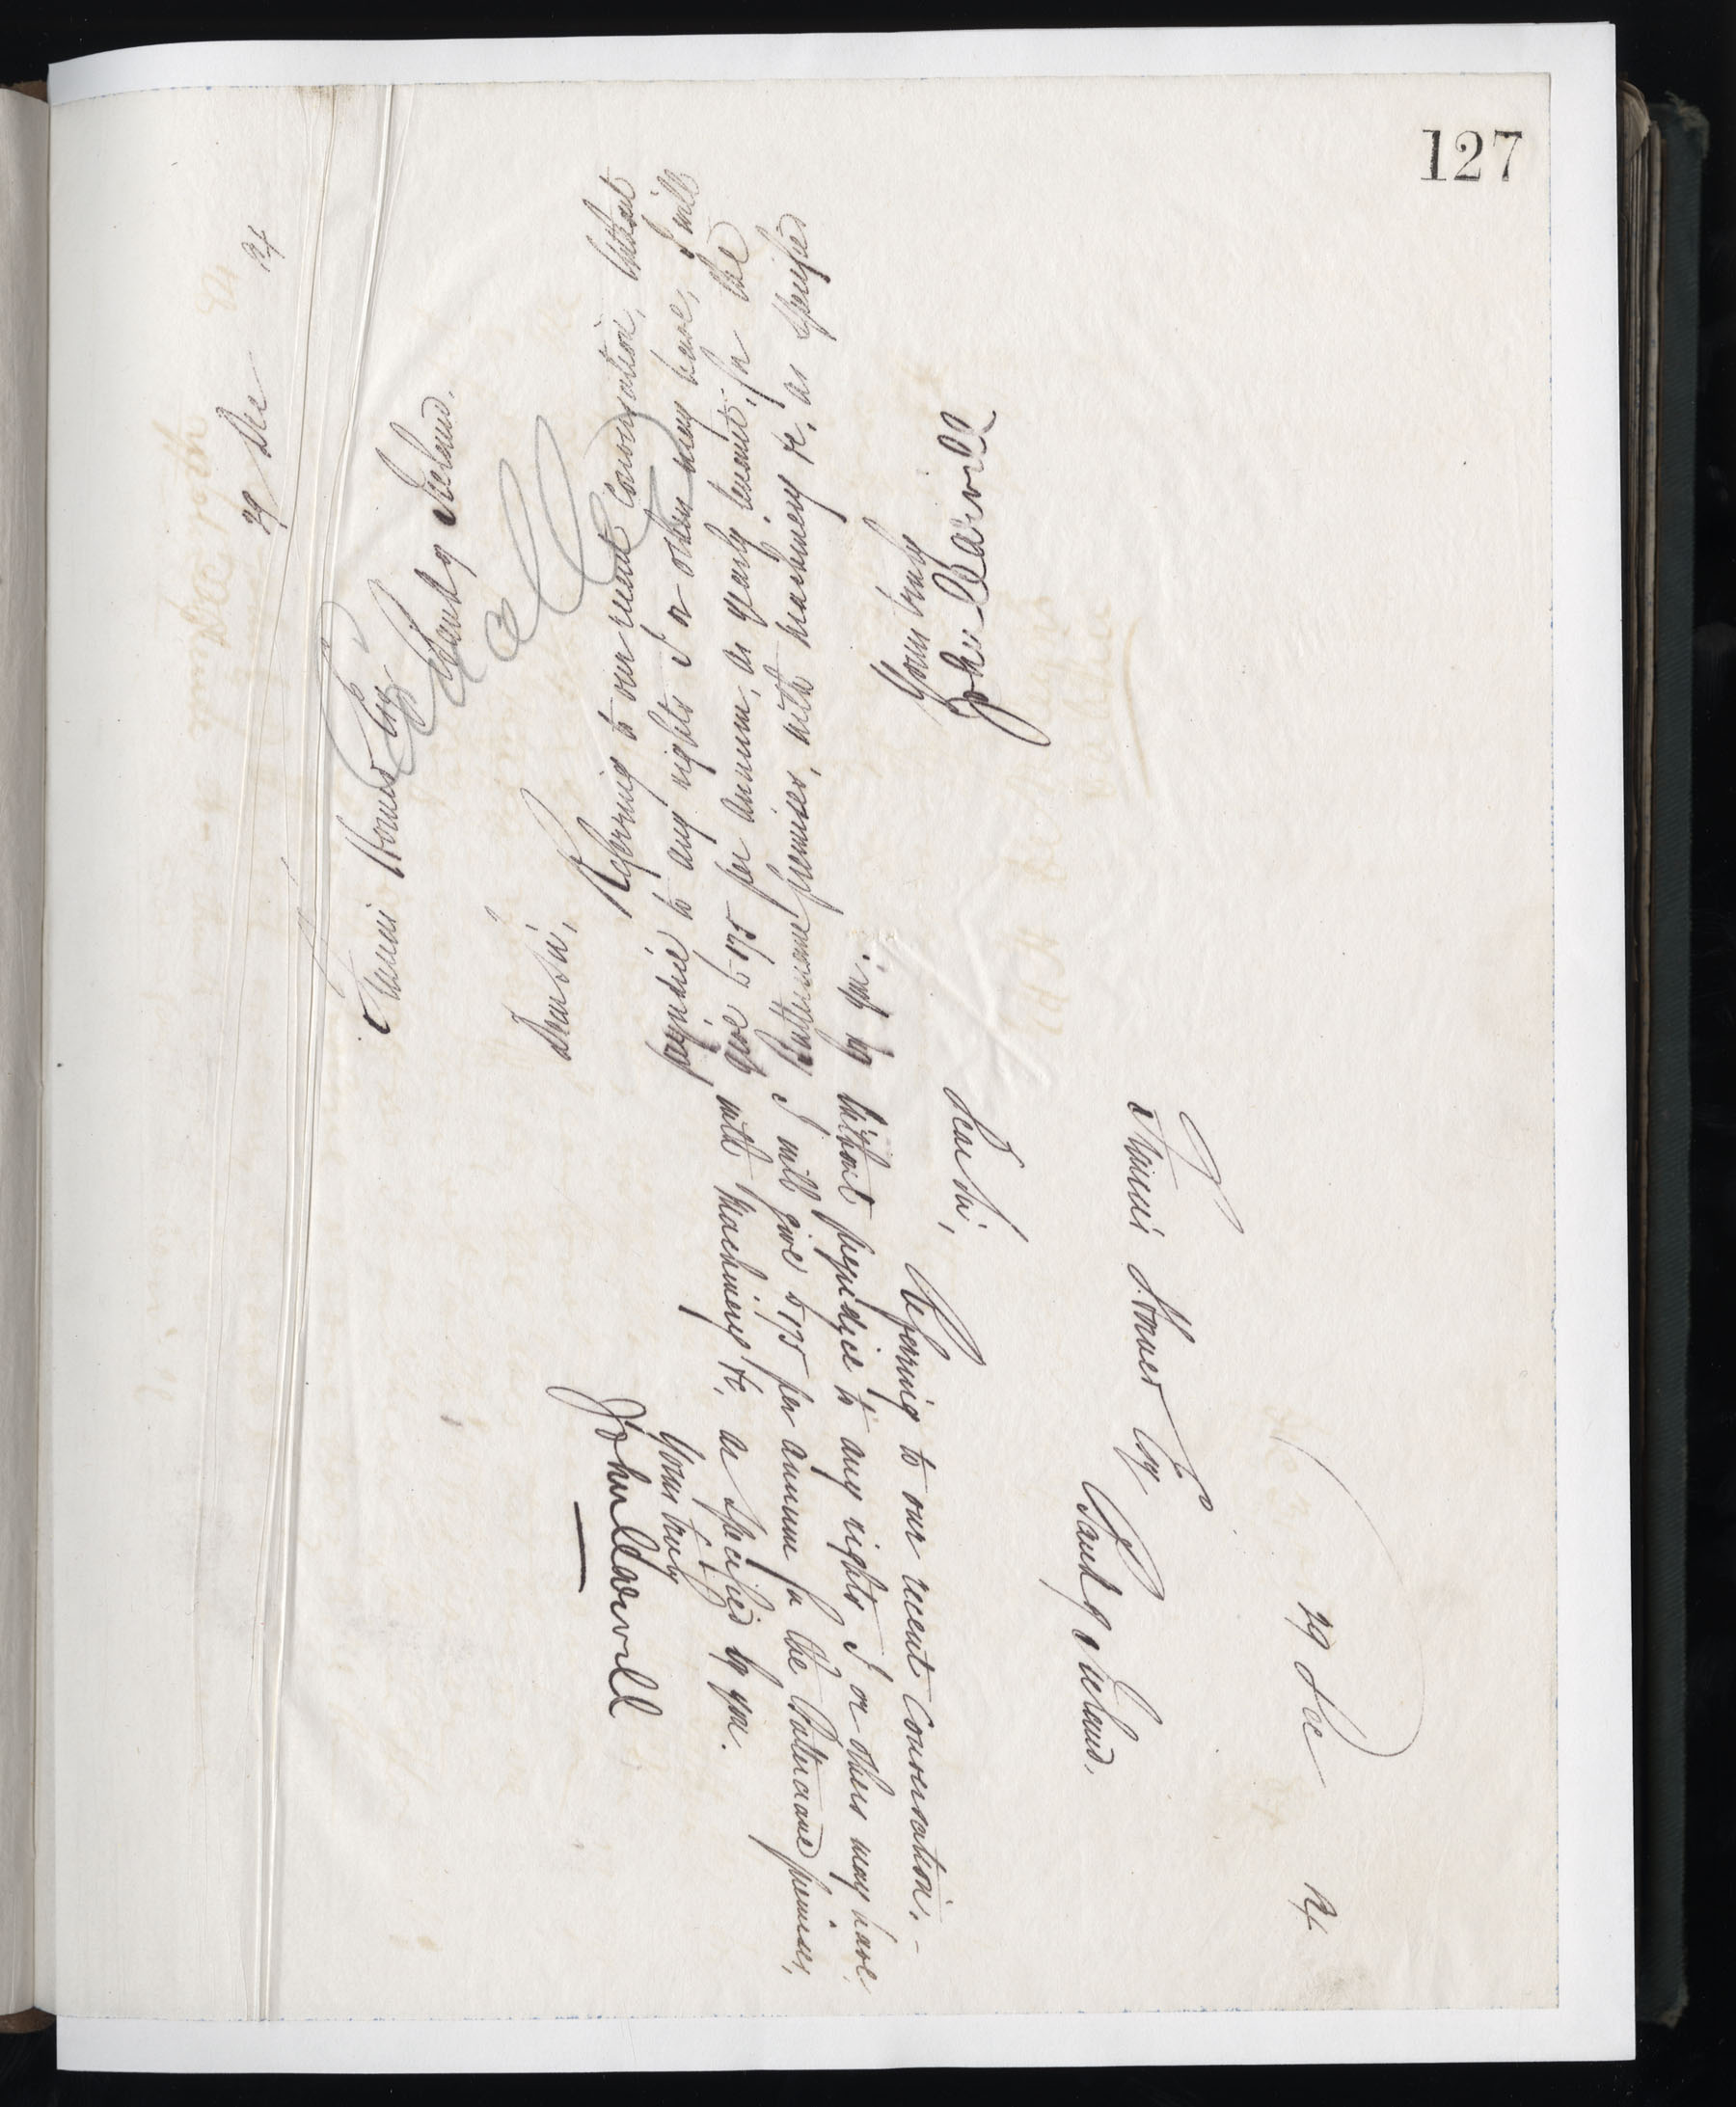 127
29 Dec 94
Francis Homer Esq
Bank of Ireland.
Dear Sir,
Referring to our recent conversation, without
prejudice to any rights I or others may have, I will
give £175 per annum, as yearly tenant, for the
premises, with machinery &c. as specified
by you.
Yours truly
John Carvill
29 Dec 94
Francis Homer Esq
Bank of Ireland.
Dear Sir,
Referring to our recent conversation.-
without prejudice to any rights I or others may have
I will give £175 per annum for the premises,
with Machinery &c. as specified by you.
Yours truly
John Carvill